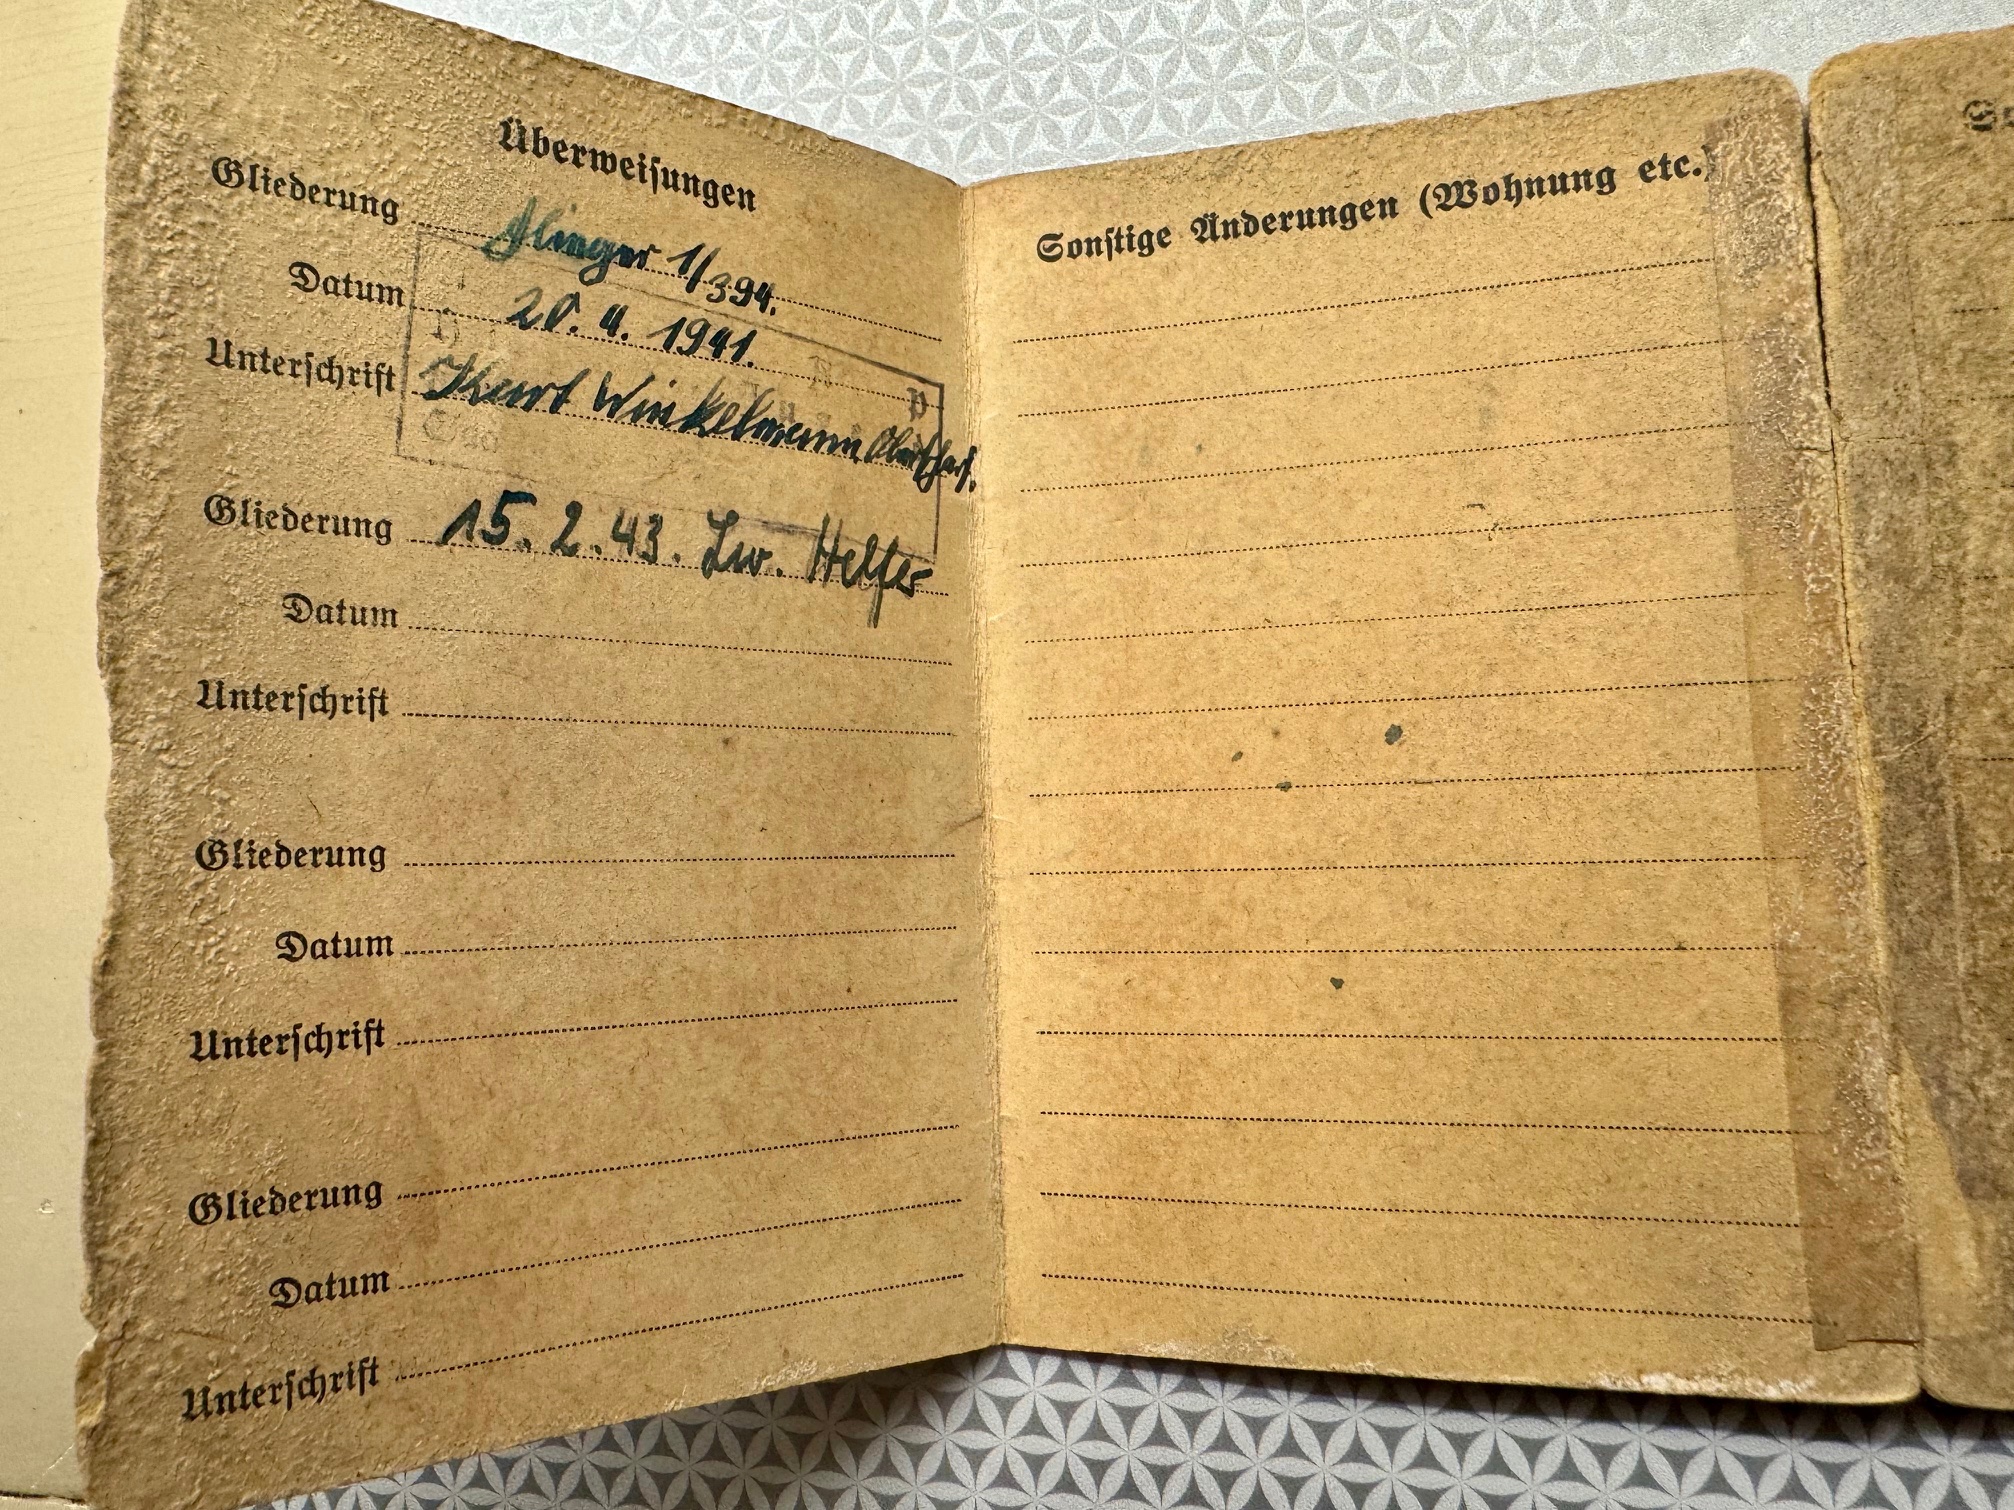 Überweisungen
Gliederung Flieger 1/394.
Datum 20. 4. 1941.
Unterschrift Kurt Winkelmann Oberscharf.
Gliederung 15. 2. 43. Lw. Helfer
Datum
Unterschrift
Gliederung
Datum
Unterschrift
Gliederung
Datum
Unterschrift
Sonstige Änderungen (Wohnung etc.)